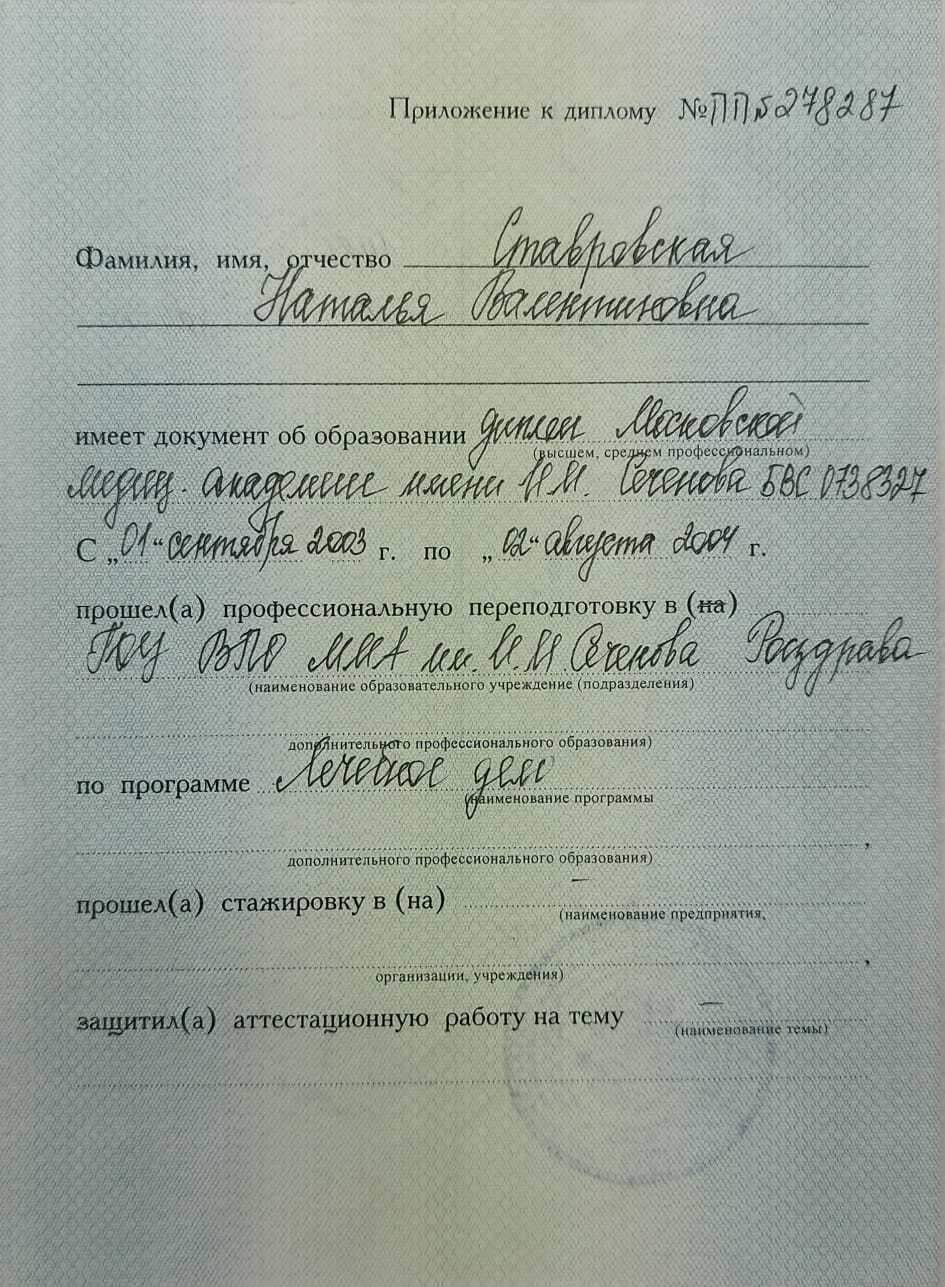 Приложение к диплому № ПП № 278287
Фамилия, имя, отчество Ставровская
Наталья Валентиновна
имеет документ об образовании диплом Московской
(высшем, среднем профессиональном)
медиц. академии имени И.М. Сеченова БВС 0738327
С „01“ сентября 2003 г. по „02“ августа 2004 г.
прошел(а) профессиональную переподготовку в (на)
ГОУ ВПО ММА им. И.М. Сеченова Росздрава
(наименование образовательного учреждение (подразделения)
дополнительного профессионального образования)
по программе Лечебное дело
(наименование программы
дополнительного профессионального образования)
,
прошел(а) стажировку в (на) –
(наименование предприятия,
организации, учреждения)
,
защитил(а) аттестационную работу на тему –
(наименование темы)